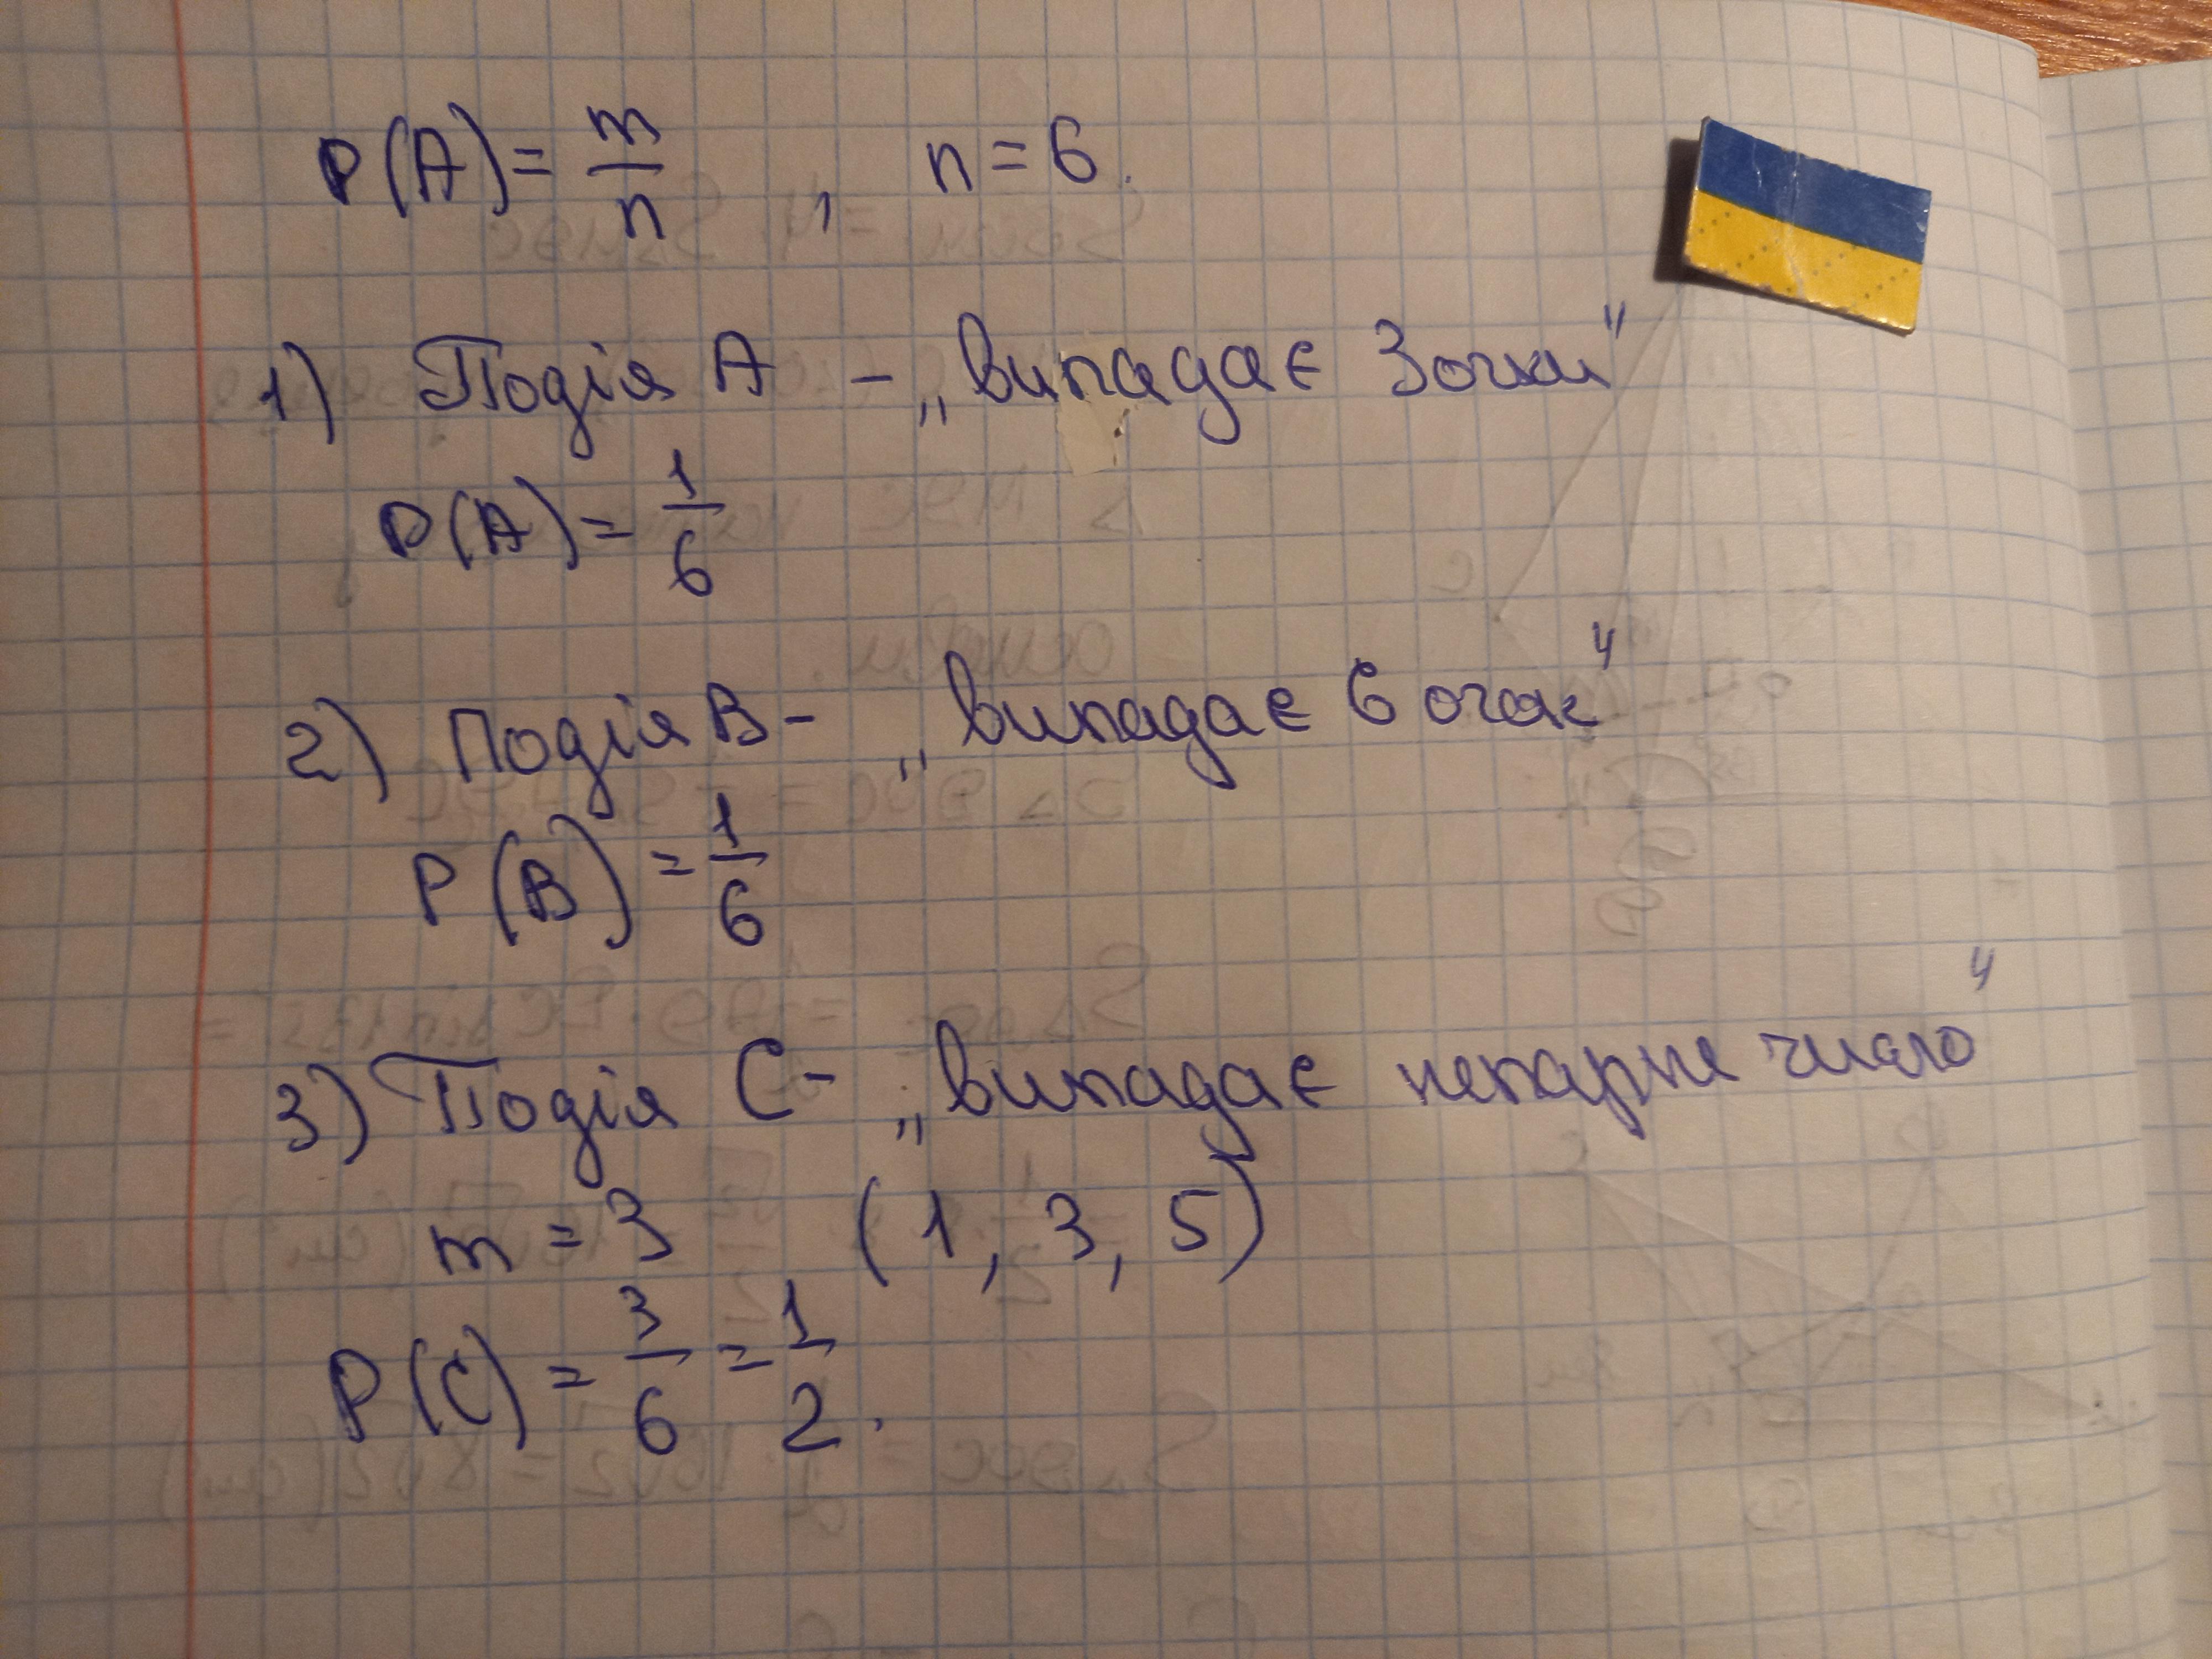 P(A) = m/n , n = 6.
1) Подія А – „випадає 3 очки"
P(A) = 1/6
2) Подія В – „випадає 6 очок"
P(B) = 1/6
3) Подія С – „випадає непарне число"
m = 3 (1, 3, 5)
P(C) = 3/6 = 1/2.